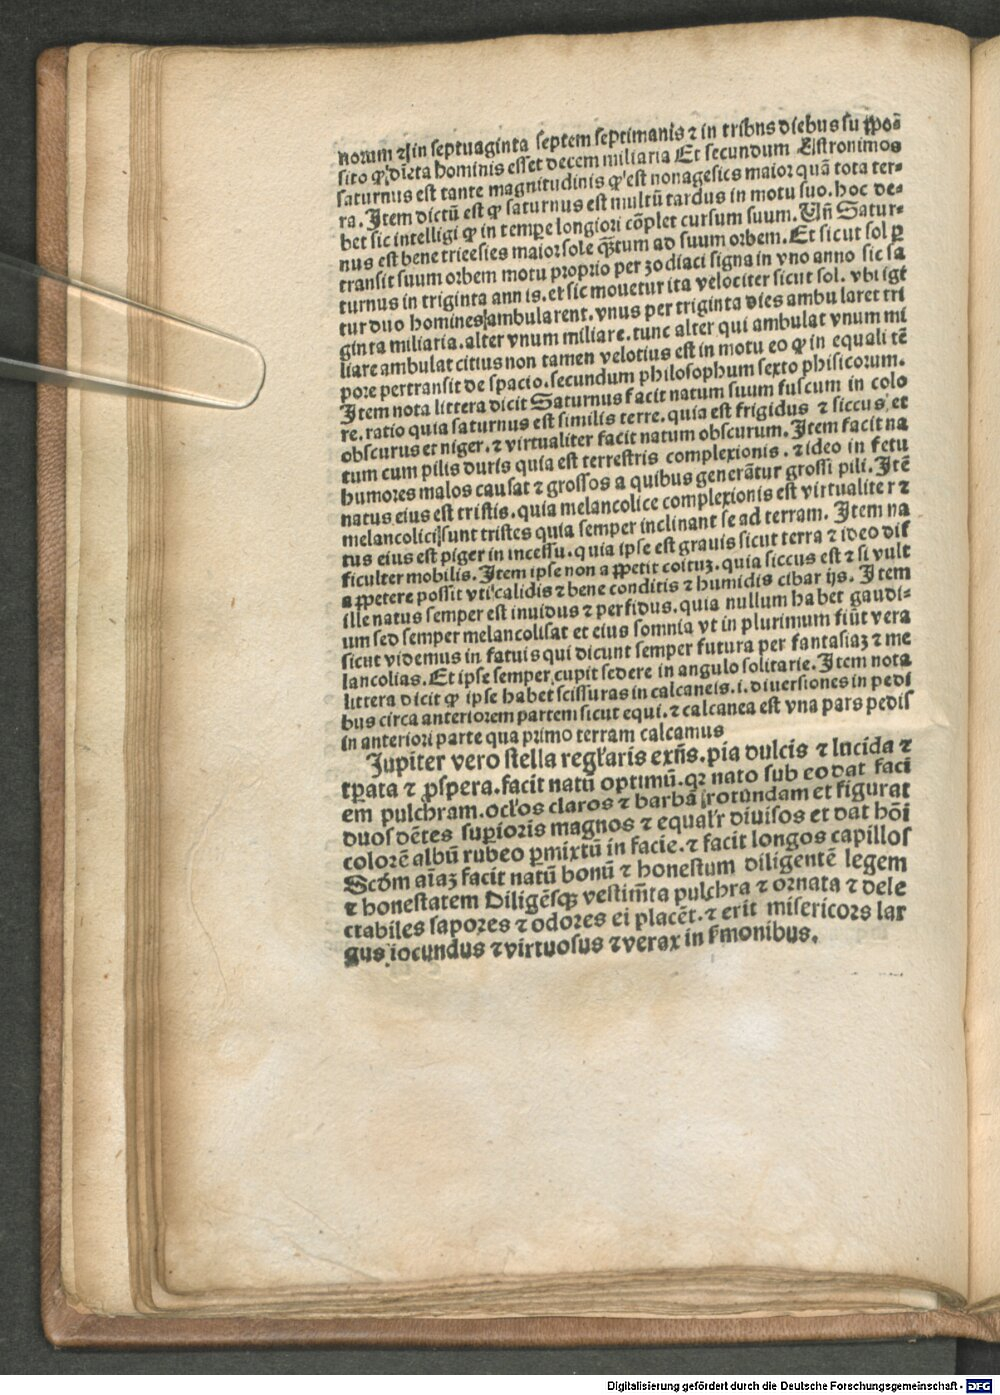 norum ⁊ in septuaginta septem septimanis ⁊ in tribns diebus su ꝓpoſ̄
sito qͥ dieta hominis esset decem miliaria Et secundum Astronimos
saturnus est tante magnitudinis qͥ est nonagesies maior quā tota ter-
ra. Item dictū est qͥ saturnus est multū tardus in motu suo. hoc de-
bet sic intelligi qͥ in tempore longiori cōplet cursum suum. Vñ Satur-
nus est bene tricesies maior sole qꝫtum ad suum orbem. Et sicut sol ꝑ
transit suum orbem motu proprio per zodiaci signa in vno anno sic sa
turnus in triginta annis. et sic mouetur ita velociter sicut sol. vbi igi
tur duo homines ambularent. vnus per triginta dies ambularet tri
ginta miliaria. alter vnum miliare. tunc alter qui ambulat vnum mi
liare ambulat citius non tamen velotius est in motu eo qͥ in equali tē
pore pertransit de spacio. secundum philosophum sexto phisicorum.
Item nota littera dicit Saturnus facit natum suum fuscum in colo
re. ratio quia saturnus est similis terre. quia est frigidus ⁊ siccus et
obscurus et niger. ⁊ virtualiter facit natum obscurum. Item facit na
tum cum pilis duris quia est terrestris complexionis. ⁊ ideo in fetu
humores malos causat ⁊ grossos a quibus generātur grossi pili. Itē
natus eius est tristis. quia melancolice complexionis est virtualiter ⁊
melancolici sunt tristes quia semper inclinant se ad terram. Item na
tus eius est piger in incessu. quia ipse est grauis sicut terra ⁊ ideo dif
ficulter mobilis. Item ipse non appetit coituꝫ. quia siccus est ⁊ si vult
appetere possit vti calidis ⁊ bene conditis ⁊ humidis cibarijs. Item
ille natus semper est inuidus ⁊ perfidus. quia nullum habet gaudi-
um sed semper melancolisat et eius somnia vt in plurimum fiūt vera
sicut videmus in fatuis qui dicunt semper futura per fantasiaꝫ ⁊ me
lancolias. Et ipse semper cupit sedere in angulo solitarie. Item nota
littera dicit qͥ ipse habet scissuras in calcaneis. i. diuersiones in pedi
bus circa anteriorem partem sicut equi. ⁊ calcanea est vna pars pedis
in anteriori parte qua primo terram calcamus
Jupiter vero stella regl'aris exñs. pia dulcis ⁊ lncida ⁊
tꝑata ⁊ ꝓspera. facit natū optimū. qꝛ nato sub eo dat faci
em pulchram. ocl'os claros ⁊ barbā rotundam et figurat
duos dētes suꝑioris magnos ⁊ equal'r diuisos et dat hōi
colorē albū rubeo ꝑmixtū in facie. ⁊ facit longos capillos
Scd̄m aīaꝫ facit natū bonū ⁊ honestum diligentē legem
⁊ honestatem Diligēsqꝫ vestim̄ta pulchra ⁊ ornata ⁊ dele
ctabiles sapores ⁊ odores ei placēt. ⁊ erit misericors lar
gus iocundus ⁊ virtuosus ⁊ verax in s̄monibus.
Digitalisierung gefördert durch die Deutsche Forschungsgemeinschaft - DFG